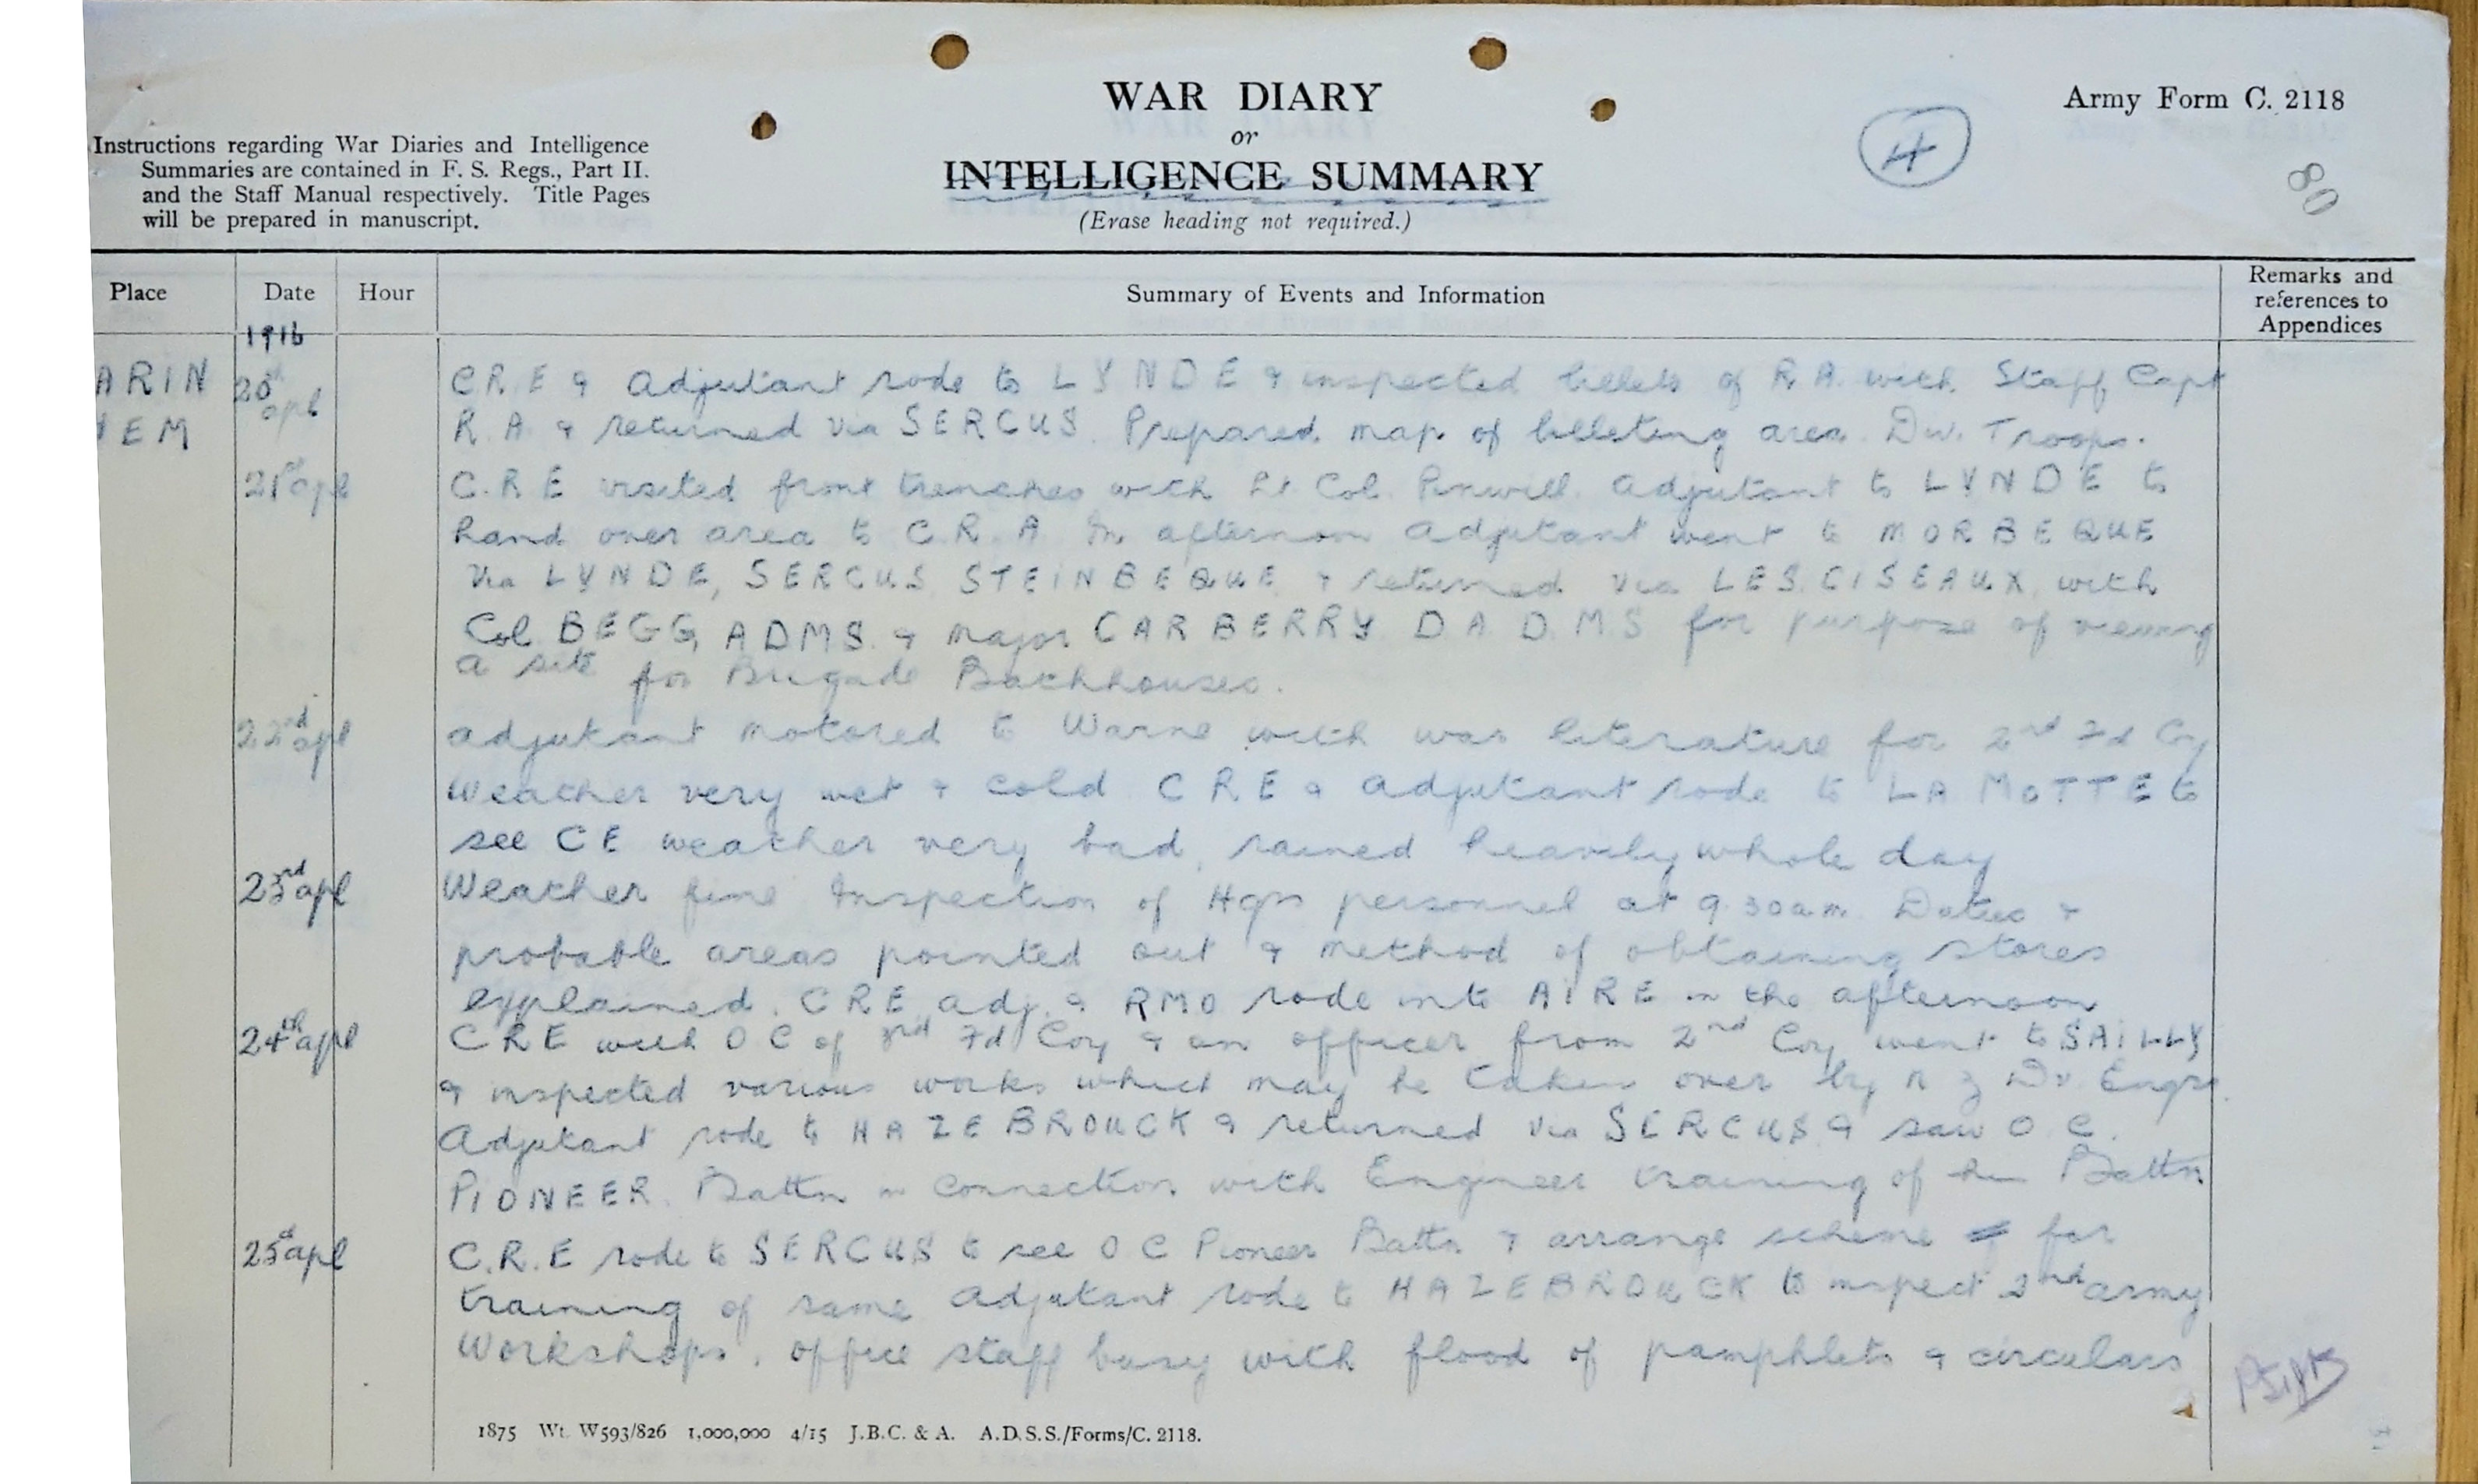 WAR DIARY
or
INTELLIGENCE SUMMARY
(Erase heading not required.)
Army Form C. 2118
4
80
Instructions regarding War Diaries and Intelligence
Summaries are contained in F. S. Regs., Part II.
and the Staff Manual respectively. Title Pages
will be prepared in manuscript.
Place Date Hour Summary of Events and Information Remarks and references to Appendices
1916
ARIN 20th apl C.R.E & Adjutant rode to LYNDE & inspected billets of R.A. with Staff Capt
EM R.A. & returned via SERCUS. Prepared map of billeting area. Div. Troops.
21st apl C.R.E visited front trenches with Lt Col. Pinwill. Adjutant to LYNDE to
hand over area to C.R.A. In afternoon Adjutant went to MORBEQUE
via LYNDE, SERCUS STEINBEQUE & returned via LES CISEAUX with
Col. BEGG, ADMS. & Major CARBERRY D.A.D.M.S for purpose of viewing
a site for Brigade Bathhouses.
22nd apl Adjutant motored to Warne with war literature for 2nd Fd Coy
Weather very wet & cold CRE & Adjutant rode to LA MOTTE to
see CE weather very bad, rained heavily whole day
23rd apl Weather fine Inspection of Hqrs personnel at 9.30am. Duties &
probable areas pointed out & method of obtaining stores
explained. CRE adj. & RMO rode into AIRE in the afternoon
24th apl CRE with O C of 3rd Fd Coy & an officer from 2nd Coy went to SAILLY
& inspected various works which may be taken over by N Z Div Engrs.
Adjutant rode to HAZEBROUCK & returned via SERCUS & saw O.C.
PIONEER. Battn in connection with Engineer training of his Battn
25th apl C.R.E rode to SERCUS to see O C Pioneer Battn & arrange scheme for
training of same Adjutant rode to HAZEBROUCK to inspect 2nd army
Workshops. office staff busy with flood of pamphlets & circulars
1875 Wt. W593/826 1,000,000 4/15 J.B.C. & A. A.D.S.S./Forms/C. 2118.